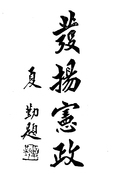 發揚憲政
夏勤題